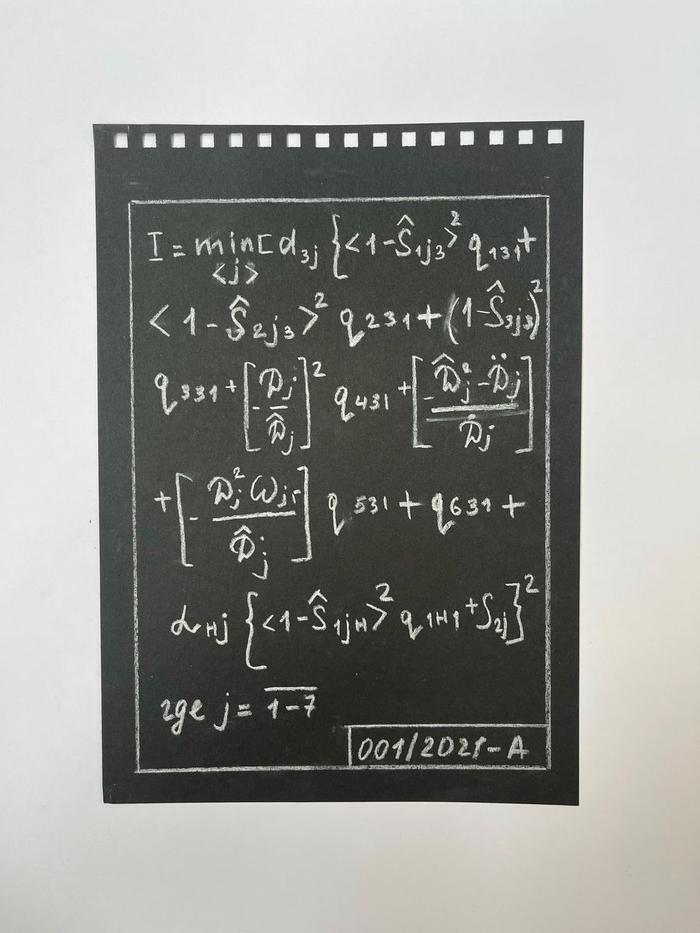 I = min [ d₃ⱼ { <1-Ŝ₁ⱼ₃>² q₁₃₁ +
<j>
<1-Ŝ₂ⱼ₃>² q₂₃₁ + (1-Ŝ₃ⱼ₃)²
q₃₃₁ + [ - 𝒟ⱼ / 𝒟̂ⱼ ]² q₄₃₁ + [ - 𝒟̂ⱼ² - 𝒟̈ⱼ / 𝒟̇ⱼ ]
+ [ - 𝒟ⱼ² ωⱼᵣ / 𝒟̂ⱼ ] q₅₃₁ + q₆₃₁ +
αₕⱼ { <1-Ŝ₁ⱼₕ>² q₁ₕ₁ + S₂ⱼ }²
где j = 1-7
001/2021-A